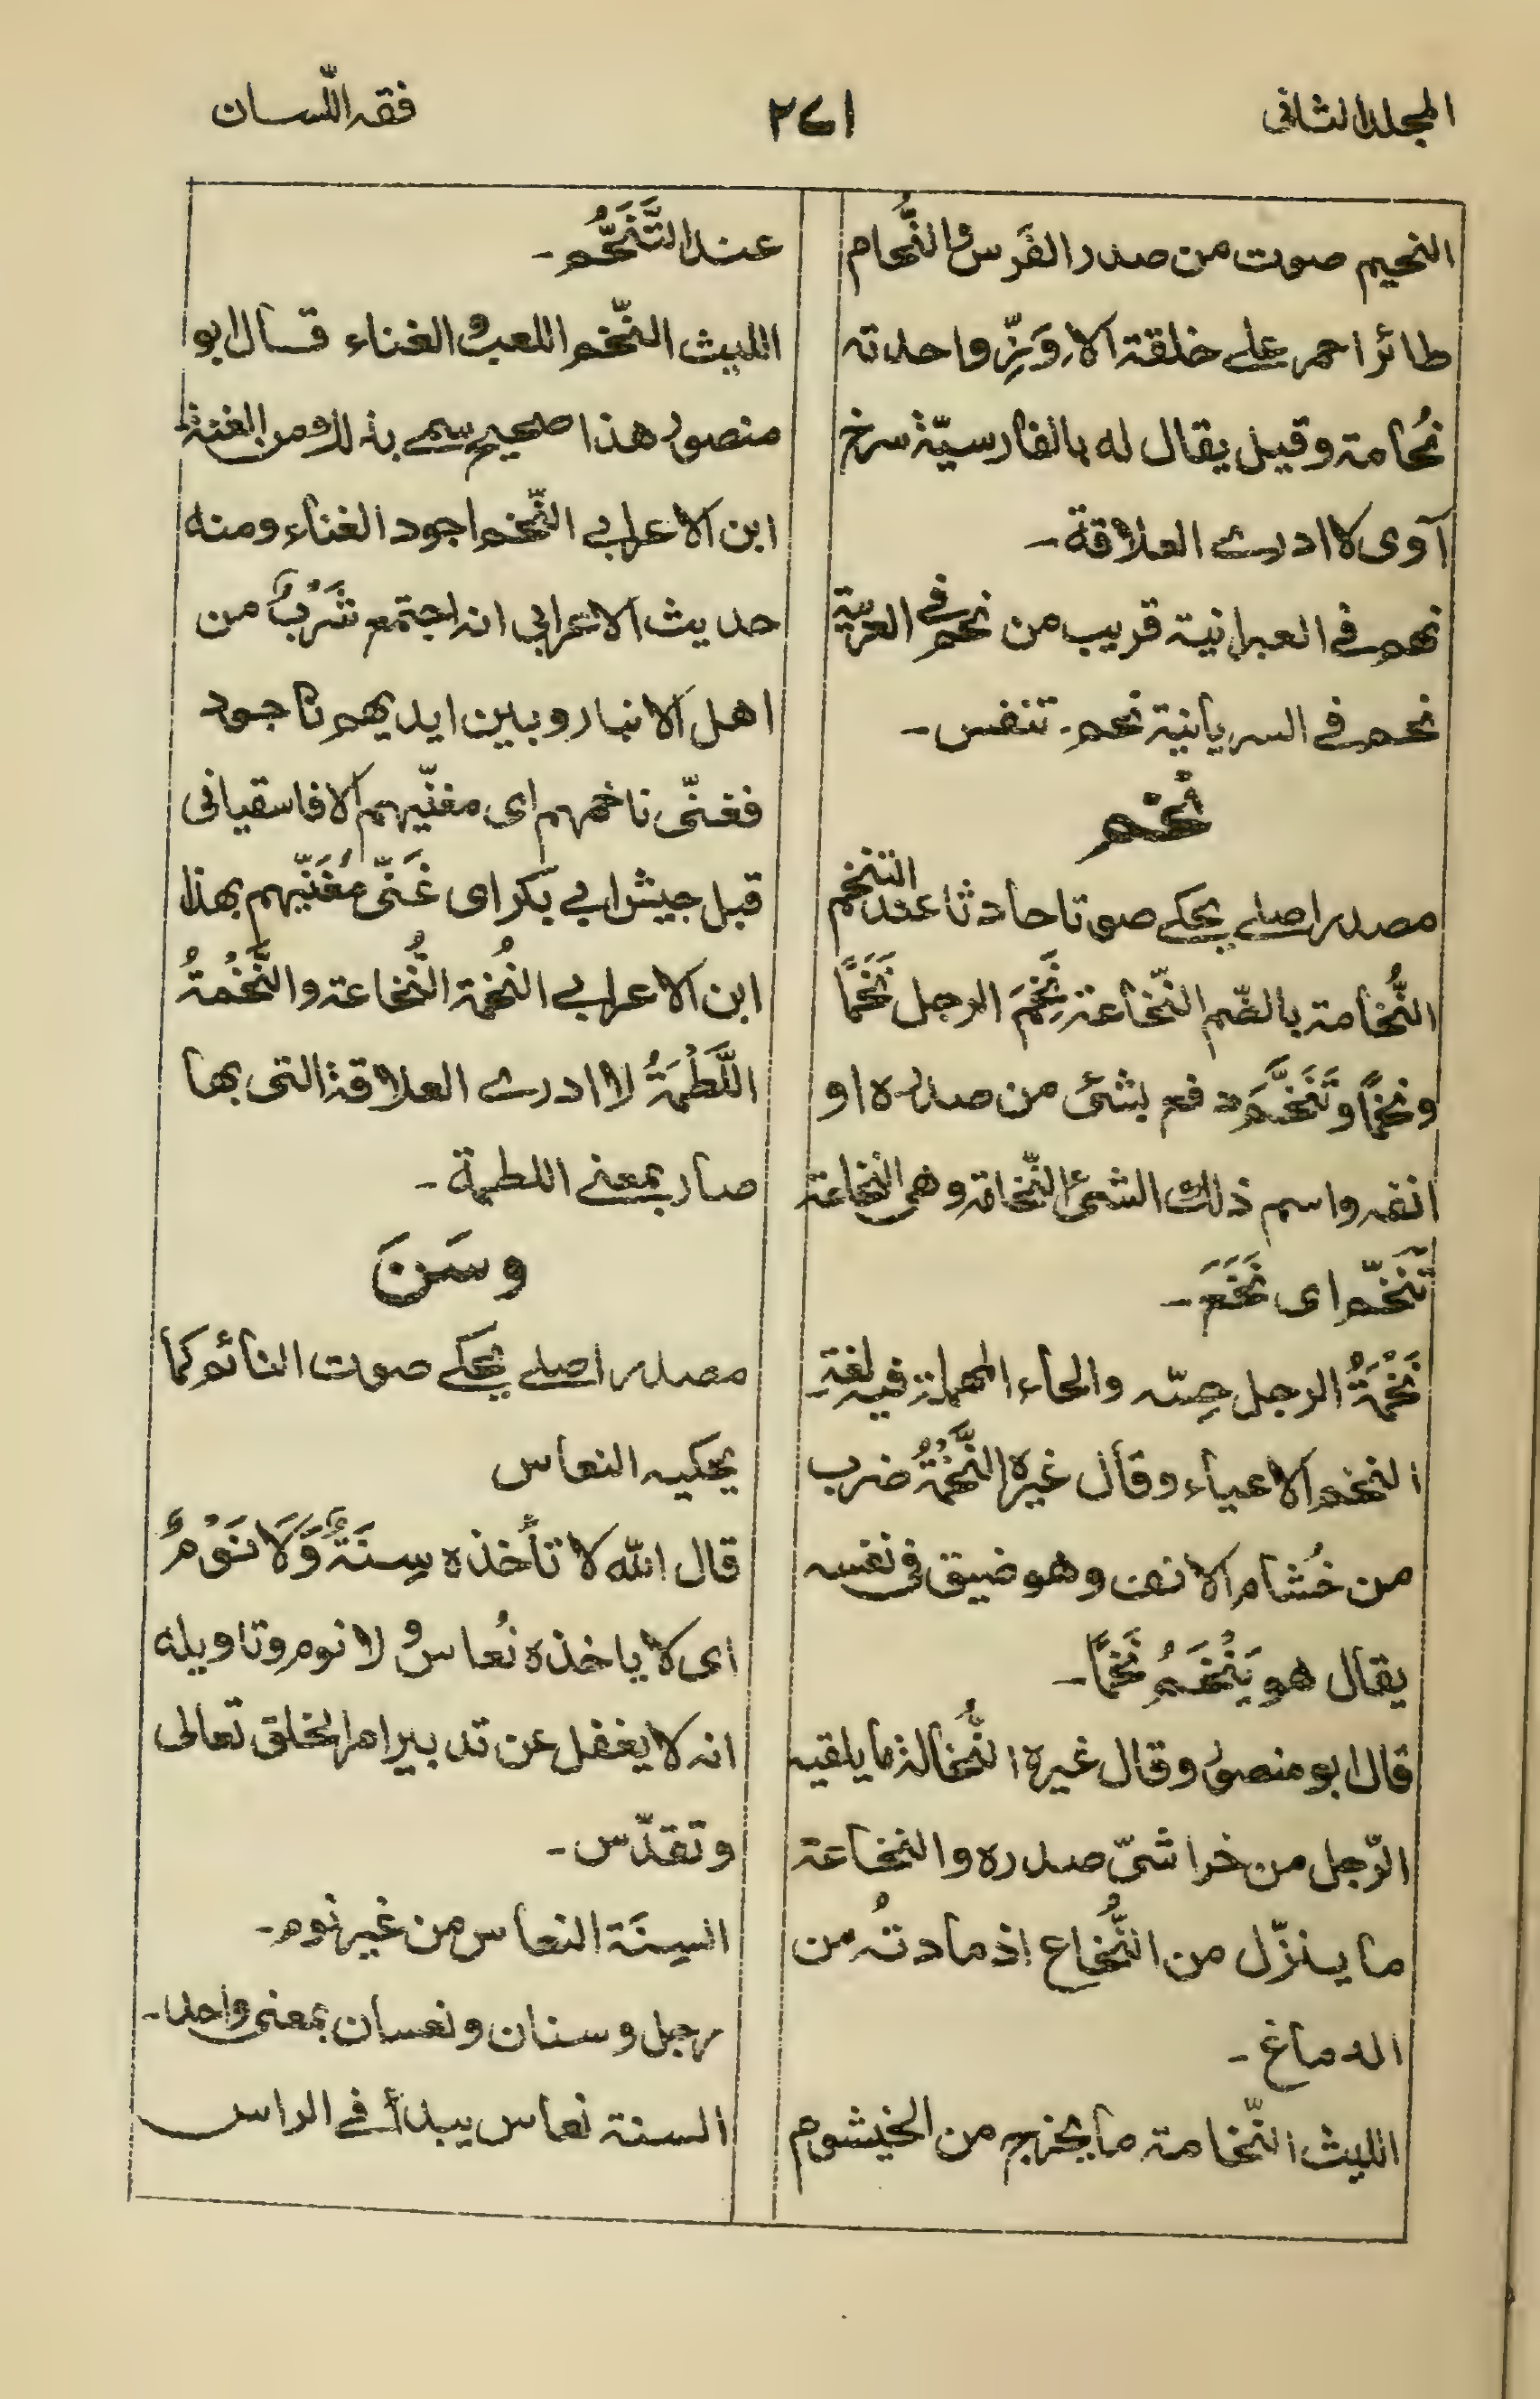 المجلد الثانی
٢٤١
فقہ اللّسان
النحیم صوت من صدر الفَرَس والنُّحام
طائر احمر علے خلقة الاِوَزِّ واحدتہ
نُحامة وقیل یقال له بالفارسیّة سرخ
آوی لا ادرے العلاقة۔
نھم فی العبرانیة قریب من نحم فی العربیّة
نحم فی السریانیة نحم۔ تنفس۔
نُخْم
مصدر اصلے یحکے صوتا حادثا عند التنخم
النُّخامة بالضّم النّخاعة نَخِمَ الرجل نَخَمًا
ونخمًا وتَنَخَّمَ دفع بشئ من صدرہ او
انفہ واسم ذلك الشئ النّخامة وھی النّخاعة
تَنَخَّم ای نَخَعَ۔
نَخْمَةُ الرجل حِسّہ والحاء المھملة فیہ لغة
النخم الاعیاء وقال غیرہ النَّخْمَةُ ضرب
من خُشَام الانف وھو ضیق فی نفسہ
یقال ھو یَنْخَمُ نَخْمًا۔
قال ابو منصور وقال غیرہ النُّخالة ما یلقیہ
الرّجل من خراشیّ صدرہ والنخاعة
ما ینزّل من النُّخاع اذ مادتُہ من
الدماغ۔
اللیث النّخامة ما یخرج من الخیشوم
عند التَّنَخُّم۔
اللیث النّخم اللعب والغناء قال ابو
منصور ھذا صحیح سمے بذلك ومن الغنة
ابن الاعرابے النّخم اجود الغناء ومنه
حدیث الاعرابی انہ اجتمع شَرْبٌ من
اھل الانبار وبین ایدیھم ناجود
فغنّی ناخمھم ای مغنّیھم الا فاسقیانی
قبل جیش ابے بکر ای غَنّٰی مُغَنّیھم بھذا
ابن الاعرابے النُخمة النُّخاعة والنَّخْمةُ
اللَّطْمَةُ لا ادرے العلاقة التی بھا
صار بمعنے اللطمة۔
وسَنَ
مصدر اصلے یحکے صوت النائم کما
یحکیہ النعاس
قال اللّٰه لا تأخذہ سِنَةٌ وَّلَا نَوْمٌ
ای لا یاخذہ نُعاس ولا نوم وتاویله
انہ لا یغفل عن تدبیر امر الخلق تعالی
وتقدّس۔
السِنَة النعاس من غیر نوم۔
رجل وسنان ونعسان بمعنی واحد۔
السنة نعاس یبدأ فی الراس